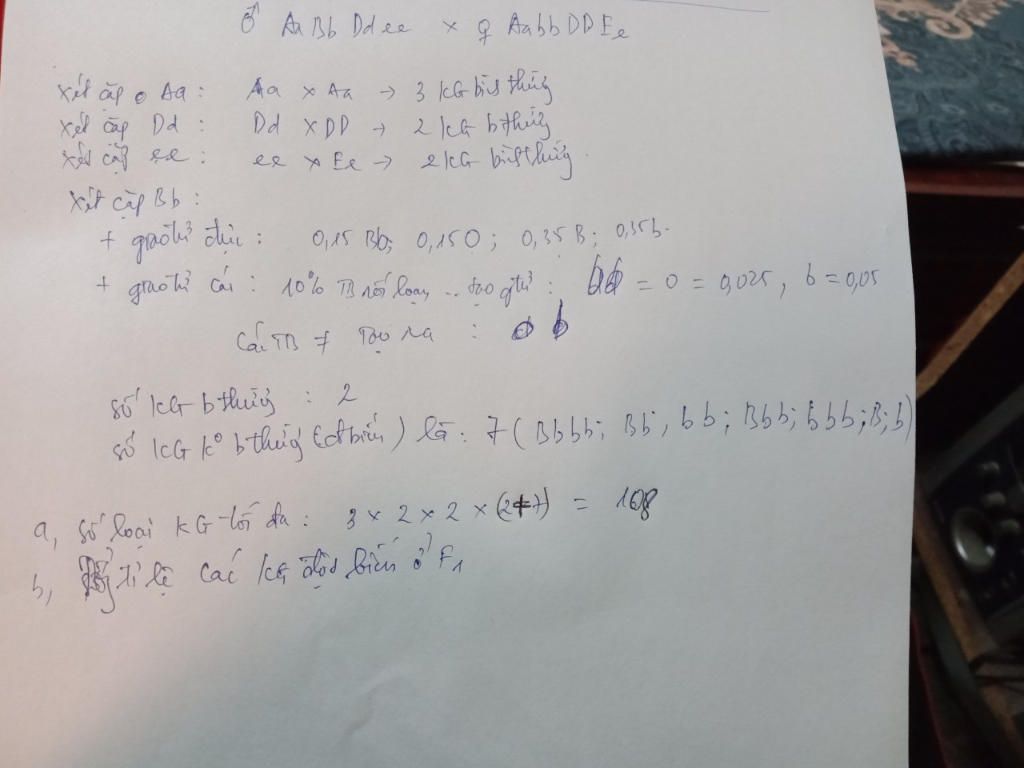 ♂ AaBb Ddee x ♀ AabbDDEe
xét cặp Aa : Aa x Aa → 3 KG bình thường
xét cặp Dd : Dd x DD → 2 KG b thường
xét cặp ee : ee x Ee → 2 KG bình thường
xét cặp Bb :
+ giao tử đực : 0,15 Bb; 0,15 0 ; 0,35 B; 0,35b.
+ giao tử cái : 10% TB rối loạn .. tạo gtử : bb = 0 = 0,025, b = 0,05
các TB ≠ tạo ra : b
số KG b thường : 2
số KG k° b thường (đbiến) là : 7 (Bbbb; Bb, bb; Bbb; bbb; B; b)
a, số loại KG tối đa : 3 x 2 x 2 x (2+7) = 108
b, tỉ lệ các KG đột biến ở F1